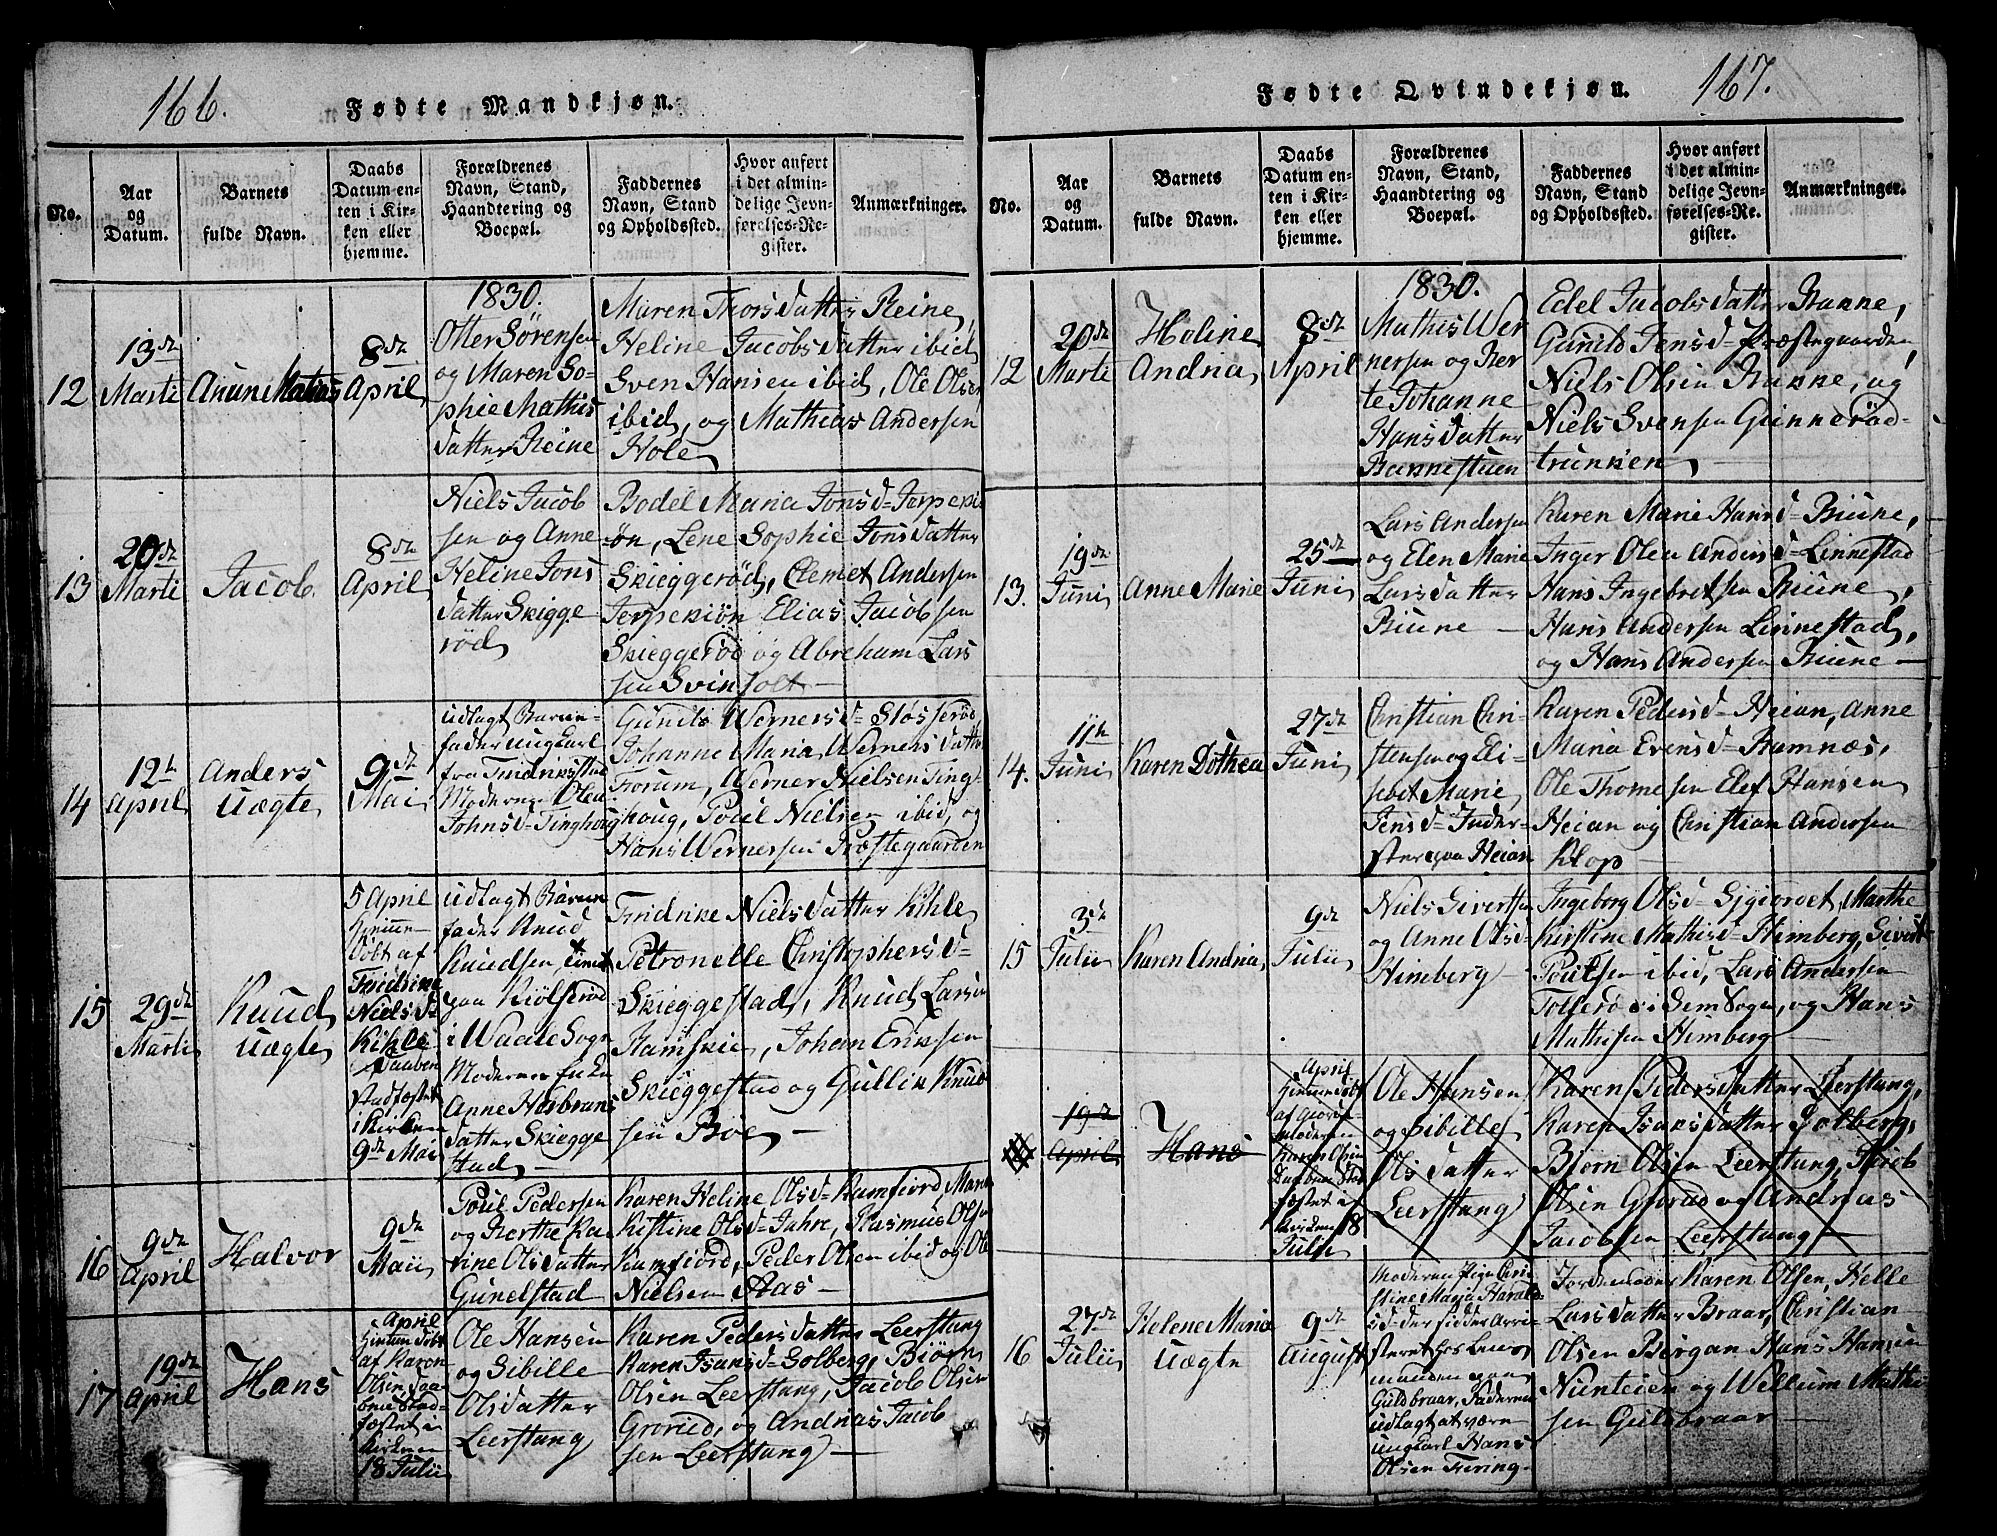 166.
Fødte Mandkjøn.
No.
Aar
og
Datum.
Barnets
fulde Navn.
Daabs
Datum en-
ten i Kir-
ken eller
hjemme.
Forældrenes
Navn, Stand,
Haandtering og
Boepæl.
Faddernes
Navn, Stand
og Opholdssted.
Hvor anført
i det almin-
delige Jevn-
førelses-Re-
gister.
Anmærkninger.
12
13de
Marti
Anun Matias
8de
April
1830.
Otter Sørensen
og Maren So-
phie Mathis
datter Reine
Maren Thorsdatter Reine,
Heline Jacobsdatter ibid,
Sven Hansen ibid, Ole Olsen
ibid, og Mathias Andersen
Hole
13
20de
Marti
Jacob.
8de
April
Niels Jacob
sen og Anne
Heline Jons
datter Skigge
rød
Bodel Maria Jonsd=
øn, Lene Sophie Jonsdatter
Skieggerød, Clemet Andersen
Jerpekiøn Elias Jacobsen
Skieggerød og Abreham Lars
sen Svinholt
14
12te
April
Anders
Uægte
9de
Mai
udlagt Barne-
fader ung Carl
fra
Moderne Olea
Johnsd= Tinghoug
Gunild Wernersd= Sløsserød
Johanne Maria Wernersdatter
Forum, Werner Nielsen Ting-
houg, Poul Nielsen ibid, og
Hans Wernersen Præstegaarden
15
29de
Marti
Knud
Uægte
5 April
hiemme
døbt af
Nielsd
Kihle
Daaben
stadfæstet
i Kirken
9de Mai
udlagt Barne
fader Knud
Knudsen,
paa Kiølserød
i Waale Sogn
Moderne Enke
Anne Halvrans
datter Skiegge
stad
Fridrike Nielsdatter Kihle
Petronelle Christophersd=
Skieggestad, Knud Larsen
Ramskie, Johan Eriksen
Skieggestad og Gullik Knud
sen Boe
16
9de
April
Halvor
9de
Maii
Poul Pedersen
og Berthe Ka
rine Olsdatter
Gunelstad
Karen Heline Olsd= Ramfiord, Maria
Kistine Olsd= Jahre, Rasmus Olsen
Ramfiord, Peder Olsen ibid og Ole
Nielsen Aas
17
19de
April
Hans
April
hiemme døbt
af Karen
Olsen, Daa-
ben Stad-
fæstet i
Kirken
18 Julii
Ole Hansen
og Sibille
Olsdatter
Leerstang
Karen Pedersdatter Leerstang
Karen Isansd= Solberg, Biørn
Olsen Leerstang, Jacob Olsen
Grorud, og Andreas Jacob
sen Leerstang
167.
Fødte Qvindekjøn.
No.
Aar
og
Datum.
Barnets
fulde Navn.
Daabs
Datum en-
ten i Kir-
ken eller
hjemme.
Forældrenes
Navn, Stand,
Haandtering og
Boepæl.
Faddernes
Navn, Stand
og Opholdssted.
Hvor anført
i det almin-
delige Jevn-
førelses-Re-
gister.
Anmærkninger.
12
20de
Marti
Holine
Andrea
8de
April
1830.
Mathis Wer
nersen og Ber
te Johanne
Hansdatter
Bakkestuen
Edel Jacobsdatter Bakke,
Gunild Jensd= Præstegaarden,
Niels Olsen Bakke, og
Niels Svensen Gunnerød-
trunken
13.
19de
Juni
Anne Marie
25de
Juni
Lars Andersen
og Elen Marie
Larsdatter
Biune
Karen Marie Hansd= Biune,
Inger Olea Andersd= Linnestad
Hans Ingebretsen Biune,
Hans Andersen Linnestad,
og Hans Andersen Biune
14.
11te
Juni
Karen Dothea
27de
Juni
Christian Chri-
stensen og Eli-
sbet Marie
Jensd= Inder-
ster paa Heian
Karen Pedersd= Heian, Anne
Maria Evensd= Ramnæs,
Ole Thomesen Elef Hansen
Heian og Christian Andersen
Klop
15
3de
Julii
Karen Andrea
9de
Julii
Niels Sivertsen
og Anne Olsd=
Himberg
Ingeborg Olsd= Sjgiordet, Marthe
Kirstine Mathisd= Himberg, Sivert
Poulsen ibid, Lars Andersen
Tollerød i Sem Sogn, og Hans
Mathisen Himberg
19de
April
Hans
April
hiemme døbt
af Giorde-
moderen
Karen Olsen
Daaben Stad
fæstet i
Kirken 18
Julii
Ole Hansen
og Sibille
Olsdatter
Leerstang
Karen Pedersdatter Leerstang,
Karen Isansdatter Solberg,
Biørn Olsen Leerstang, Jacob
Olsen Grorud og Andreas
Jacobsen Leerstang
16
27de
Julii
Helene Maria
Uægte
9de
August
Moderen Pige Chri-
stine Maria Harals-
d= der sidder Arri-
steret hos Lens-
manden paa
Guldbraar, Faderen
udlagt at være
ung Carl Hans
Olsen Fiering
Jordemoder Karen Olsen, Helle
Larsdatter Braar, Christian
Olsen Bergan Hans Hansen
Nunteien og Wellum Mathi
sen Guldbraar